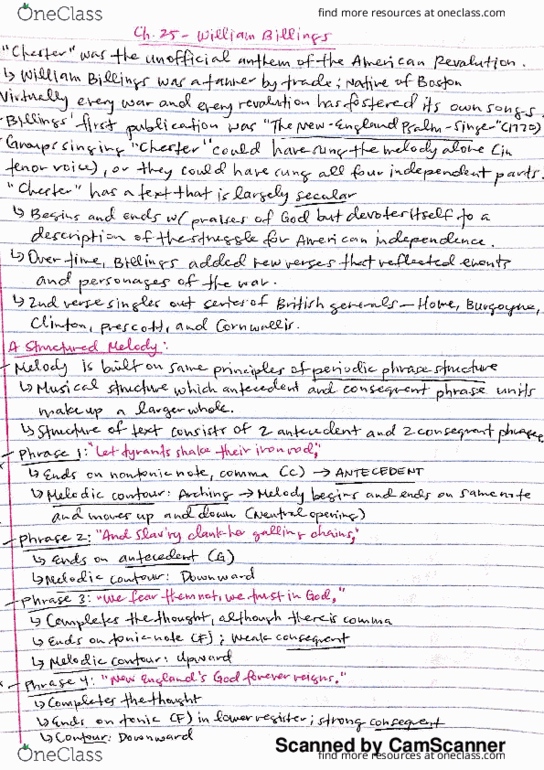 OneClass find more resources at oneclass.com
Ch. 25 - William Billings
"Chester" was the unofficial anthem of the American Revolution.
↳ William Billings was a tanner by trade; native of Boston
Virtually every war and every revolution has fostered its own songs.
Billings' first publication was "The New-England Psalm-Singer" (1770)
Groups singing "Chester" could have sung the melody alone (in
tenor voice), or they could have sung all four independent parts.
"Chester" has a text that is largely secular
↳ Begins and ends w/ praises of God but devotes itself to a
description of the struggle for American independence.
↳ Over time, Billings added new verses that reflected events
and personages of the war.
↳ 2nd verse singles out series of British generals – Howe, Burgoyne,
Clinton, Prescott, and Cornwallis.
A Structured Melody:
- Melody is built on same principles of periodic phrase structure
↳ Musical structure which antecedent and consequent phrase units
make up a larger whole.
↳ Structure of text consists of 2 antecedent and 2 consequent phrases
- Phrase 1: "Let tyrants shake their iron rod,"
↳ Ends on nontonic note, comma (C) → ANTECEDENT
↳ Melodic contour: Arching → Melody begins and ends on same note
and moves up and down (Neutral opening)
- Phrase 2: "And Slav'ry clank her galling chains,"
↳ Ends on antecedent (G)
↳ Melodic contour: Downward
- Phrase 3: "We fear them not, we trust in God,"
↳ Completes the thought, although there is comma
↳ Ends on tonic note (F); Weak consequent
↳ Melodic contour: Upward
- Phrase 4: "New England's God forever reigns."
↳ Completes the thought
↳ Ends on tonic (F) in lower register; strong consequent
↳ Contour: Downward
Scanned by CamScanner
OneClass find more resources at oneclass.com